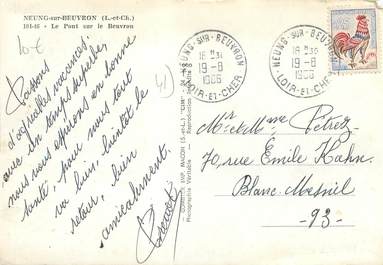 NEUNG-sur-BEUVRON (L.-et-Ch.)
101-46 - Le Pont sur le Beuvron
10€
41
Passons
d'agréables vacances
avec un temps superbe,
nous vous espérons en bonne
santé, pour nous tout
va bien, bientôt le
retour, bien
amicalement.
NEUNG-SUR-BEUVRON
19-8
1966
LOIR-ET-CHER
NEUNG-SUR-BEUVRON
19-8
1966
LOIR-ET-CHER
COMBIER IMP. MACON (S.-et-L.) "CIM"
Photographie Véritable - Reproduction
Mr et Mme Petrez
70, rue Emile Kahn
Blanc Mesnil
- 93 -